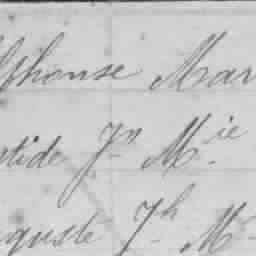 lphonse Mar
tide Jn Mie
guste Jh M